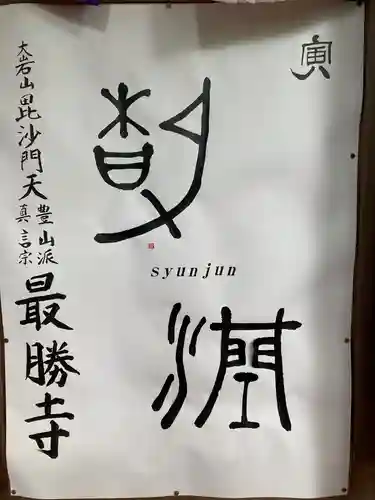 寅
潤
syunjun
大岩山毘沙門天
豊山派
真言宗
最勝寺